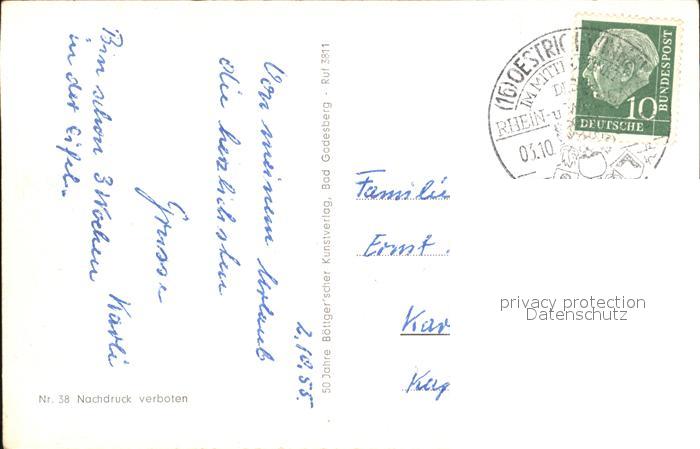 2.10.55.
Von meinem Urlaub
die herzlichsten
Grüsse
Bin schon 3 Wochen Karli
in der Eifel.
Nr. 38 Nachdruck verboten
50 Jahre Böttger'scher Kunstverlag, Bad Godesberg - Ruf 3811
(16) OESTRICH
IM MITTE
RHEIN-u
03.10
10
DEUTSCHE
BUNDESPOST
Familie
Ernst
Kar
Kap
privacy protection
Datenschutz